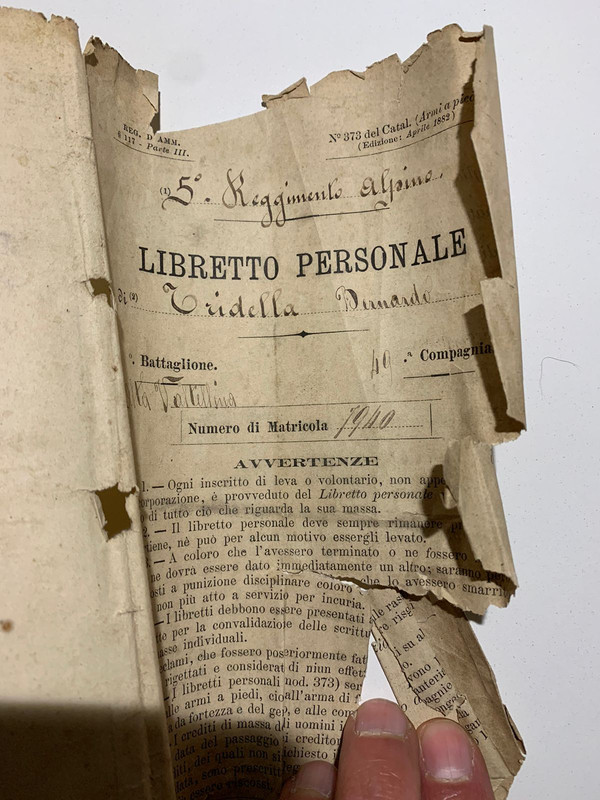 REG. D AMM.
§ 117 - Parte III.
Nº 373 del Catal. (Armi a pie
(Edizione: Aprile 1882)
(1) 5º. Reggimento Alpino.
LIBRETTO PERSONALE
di (2) Tridella Bernardo
º. Battaglione. 49 .ª Compagnia
Valtellina
Numero di Matricola 7940
AVVERTENZE
1. — Ogni inscritto di leva o volontario, non app
orporazione, è provveduto del Libretto personale
o di tutto ciò che riguarda la sua massa.
2. — Il libretto personale deve sempre rimanere pr
tiene, nè può per alcun motivo essergli levato.
— A coloro che l'avessero terminato o ne fossero
ne dovrà essere dato immediatamente un altro; saranno
osti a punizione disciplinare coloro che lo avessero smarri
non più atto a servizio per incuria.
— I libretti debbono essere presentati
te per la convalidazione delle scrittu
asse individuali.
clami, che fossero posteriormente fat
rigettati e considerati di niun effet
— I libretti personali mod. 373) ser
lle armi a piedi, cioè all'arma di f
a da fortezza e del ge , e alle com
I crediti di massa di uomini i
data del passaggio i creditor
liti, dei quali non si chiesto i
lata, sono prescritt
essere riscossi,